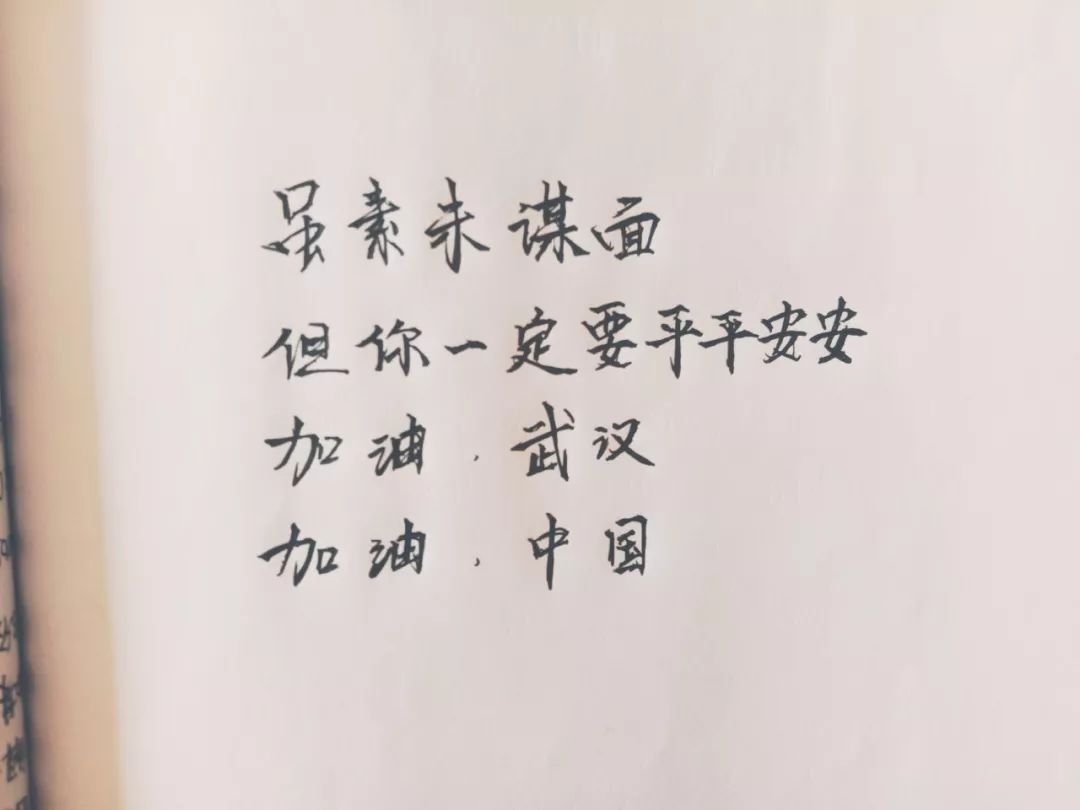 虽素未谋面
但你一定要平平安安
加油,武汉
加油,中国